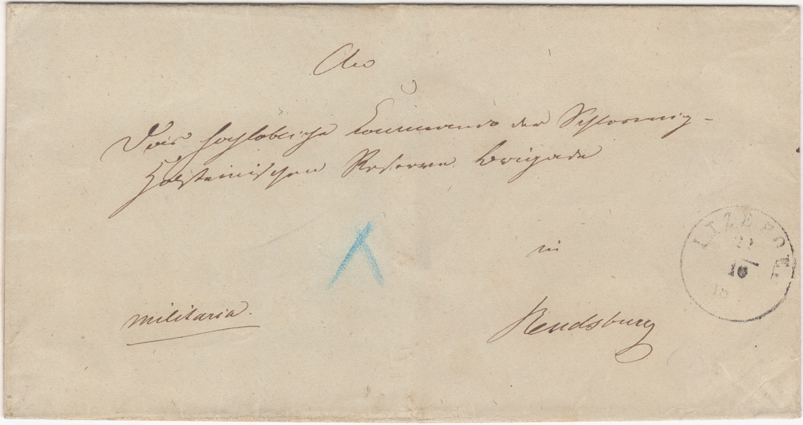 An
Das hochlöbliche Commando der Schleswig-
Holsteinischen Reserve Brigade
in
Rendsburg
militaria.
ITZEHOE.
22
10